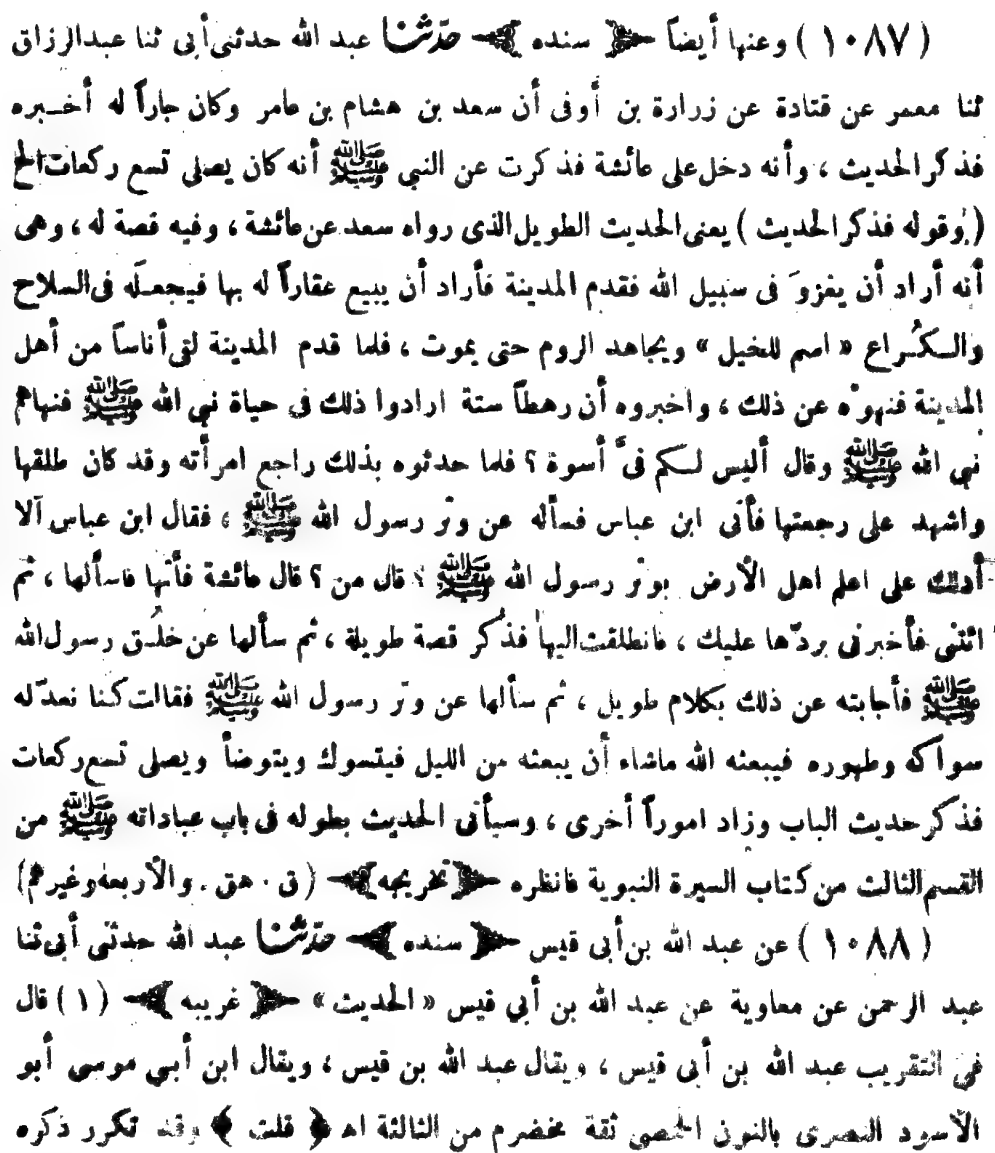 ( ١٠٨٧ ) وعنها أيضاً ﴿ سنده ﴾ حدّثنا عبد الله حدثنى أبى ثنا عبدالرزاق
ثنا معمر عن قتادة عن زرارة بن أوفى أن سعد بن هشام بن عامر وكان جاراً له أخـبره
فذكر الحديث ، وأنه دخل على عائشة فذكرت عن النبى ﷺ أنه كان يصلى تسع ركعات الخ
( وقوله فذكر الحديث ) يعنى الحديث الطويل الذى رواه سعد عن عائشة ، وفيه قصة له ، وهى
أنه أراد أن يغزوَ فى سبيل الله فقدم المدينة فأراد أن يبيع عقاراً له بها فيجعـلَه فى السلاح
والـكُراع « اسم للخيل » ويجاهد الروم حتى يموت ، فلما قدم المدينة لقى أناساً من أهل
المدينة فنهوْه عن ذلك ، واخبروه أن رهطاً ستة ارادوا ذلك فى حياة نبى الله ﷺ فنهاهم
نبى الله ﷺ وقال أليس لـكم فىَّ أسوة ؟ فلما حدثوه بذلك راجع امرأته وقد كان طلقها
واشهد على رجعتها فأتى ابن عباس فسأله عن وتر رسول الله ﷺ ، فقال ابن عباس ألا
أدلك على اعلم اهل الأرض بوتر رسول الله ﷺ ؟ قال من ؟ قال عائشة فأتها فاسألها ، ثم
ائتنى فأخبرنى بردّها عليك ، فانطلقت اليها فذكر قصة طويلة ، ثم سألها عن خلُـق رسول الله
ﷺ فأجابته عن ذلك بكلام طويل ، ثم سألها عن وتر رسول الله ﷺ فقالت كنا نعدّ له
سواكه وطهوره فيبعثه الله ماشاء أن يبعثه من الليل فيتسوك ويتوضأ ويصلى تسع ركعات
فذكر حديث الباب وزاد اموراً أخرى ، وسيأتى الحديث بطوله فى باب عباداته ﷺ من
القسم الثالث من كتاب السيرة النبوية فانظره ﴿ تخريجه ﴾ ( ق . هق . والأربعة وغيرهم )
( ١٠٨٨ ) عن عبد الله بن أبى قيس ﴿ سنده ﴾ حدّثنا عبد الله حدثنى أبى ثنا
عبد الرحمن عن معاوية عن عبد الله بن أبي قيس « الحديث » ﴿ غريبه ﴾ ( ١ ) قال
في التقريب عبد الله بن أبى قيس ، ويقال عبد الله بن قيس ، ويقال ابن أبـي موسى أبو
الأسود النصرى بالنون الحمصى ثقة مخضرم من الثالثة اهـ ﴿ قلت ﴾ وقد تكرر ذكره